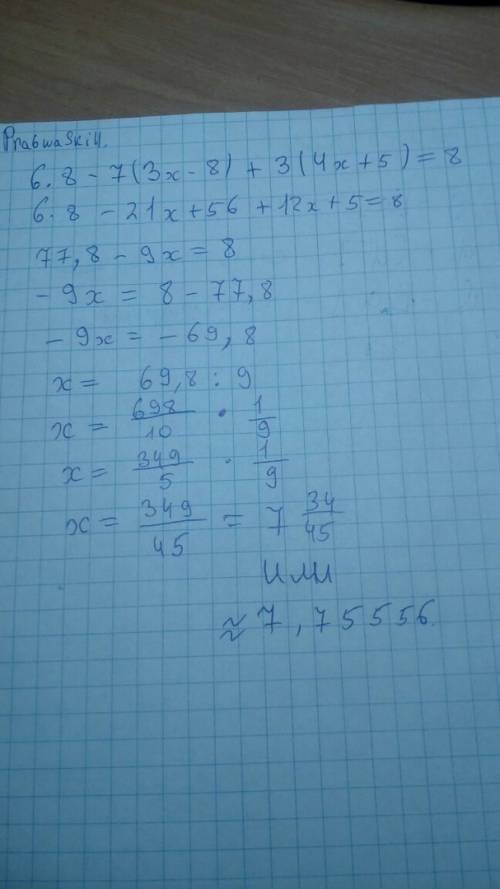 PrabwaSkill.
6.8 - 7(3x - 8) + 3(4x + 5) = 8
6.8 - 21x + 56 + 12x + 5 = 8
77,8 - 9x = 8
- 9x = 8 - 77,8
- 9x = - 69,8
x = 69,8 : 9
x = 698/10 · 1/9
x = 349/5 · 1/9
x = 349/45 = 7 34/45
или
≈ 7,75556.